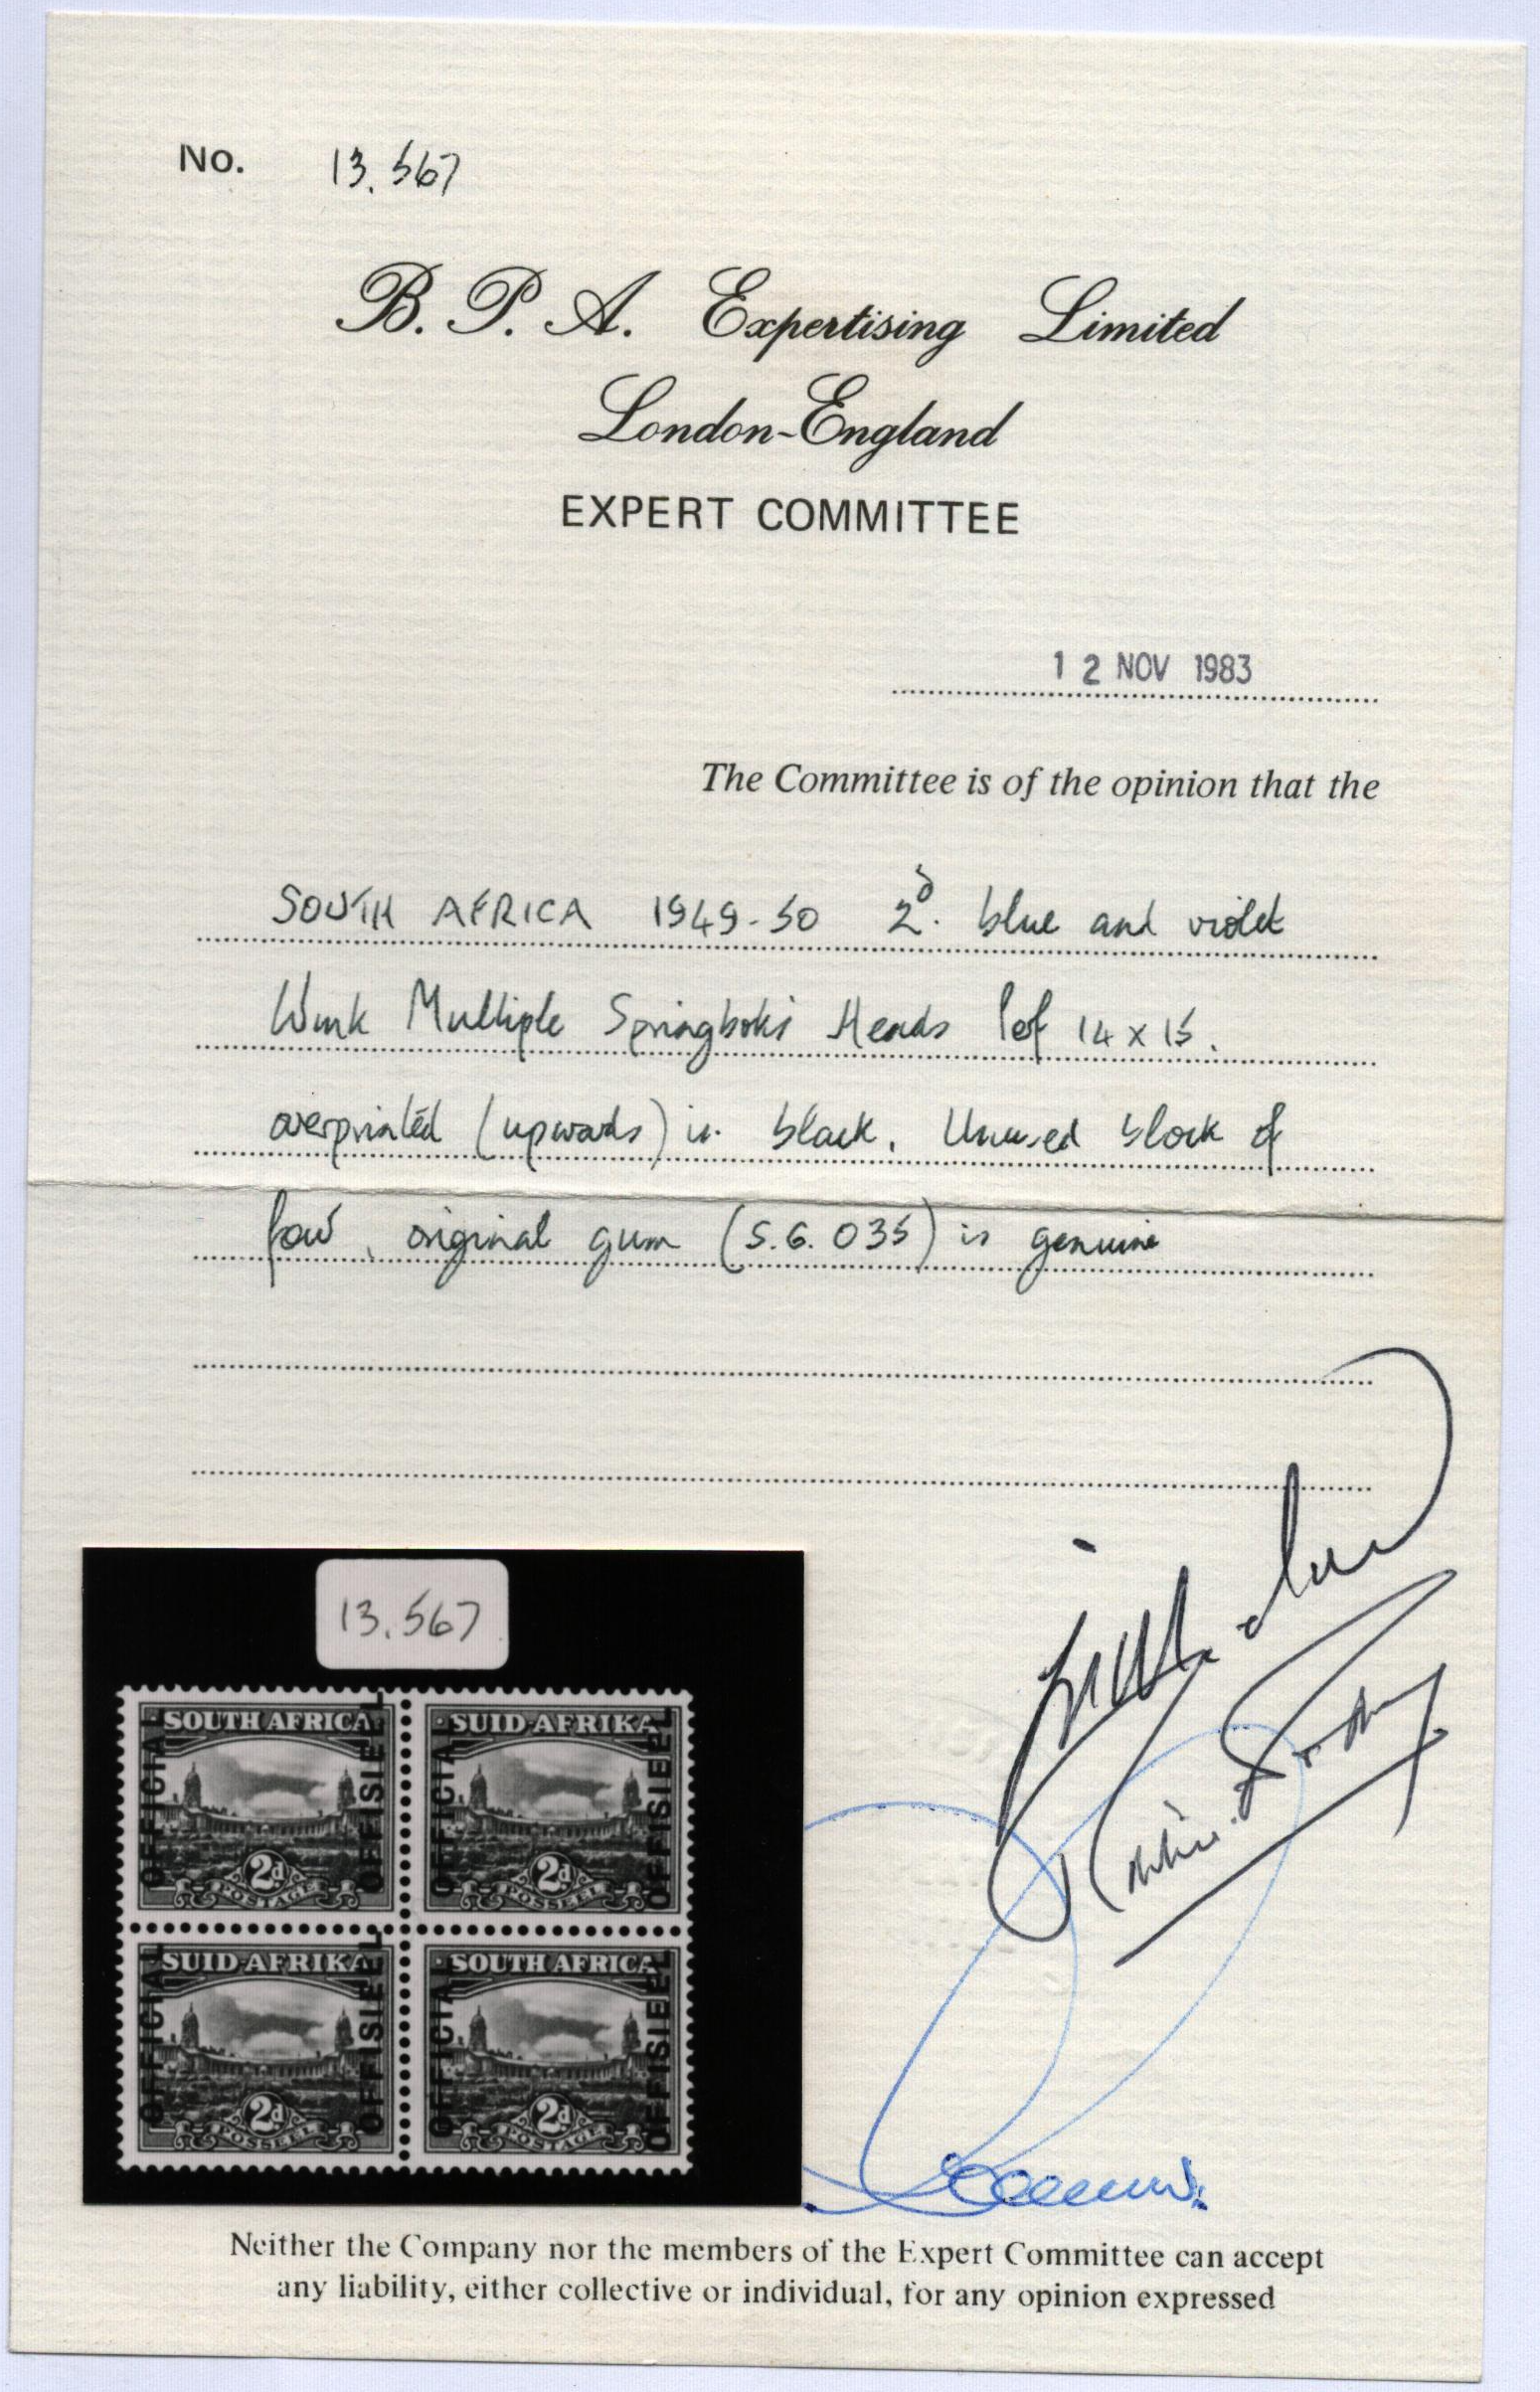 No. 13.567
B. P. A. Expertising Limited
London-England
EXPERT COMMITTEE
12 NOV 1983
The Committee is of the opinion that the
SOUTH AFRICA 1949-50 2d. blue and violet
Wmk Multiple Springboks Heads Perf 14 x 15.
overprinted (upwards) in black. Unused block of
four, original gum (S.G. O35) is genuine
13.567
SOUTH AFRICA SUID-AFRIKA
OFFICIAL OFFISIEEL OFFICIAL OFFISIEEL
2d 2d
POSTAGE POSSEEL
SUID-AFRIKA SOUTH AFRICA
OFFICIAL OFFISIEEL OFFICIAL OFFISIEEL
2d 2d
POSSEEL POSTAGE
Neither the Company nor the members of the Expert Committee can accept
any liability, either collective or individual, for any opinion expressed